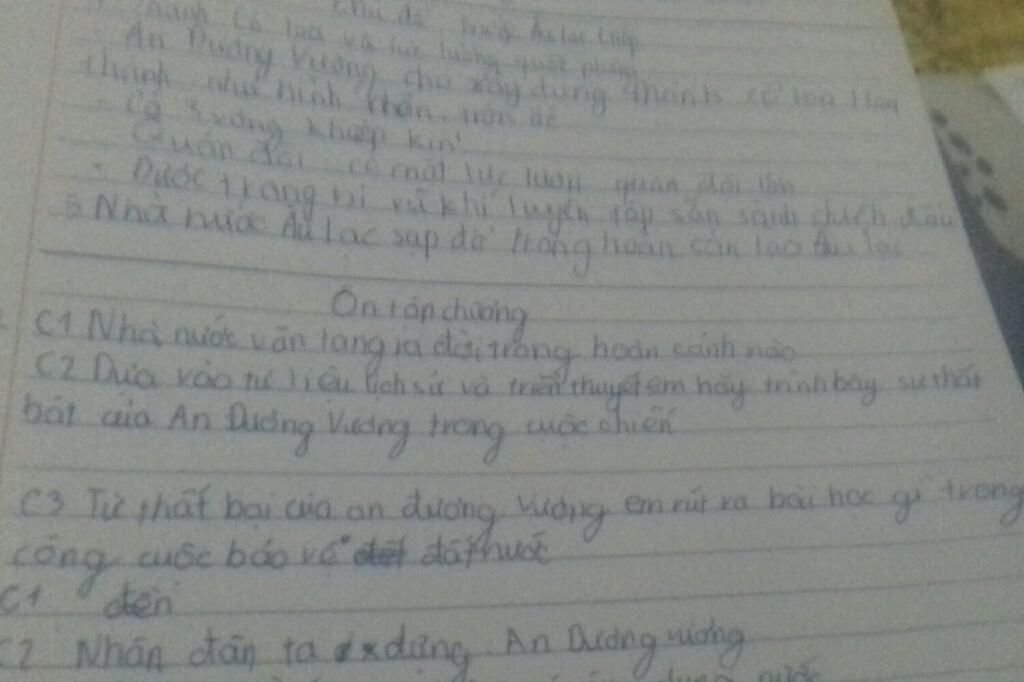 Chủ đề nước Âu Lạc tiếp
thành cổ loa và lực lượng quốc phòng
- An Dương Vương cho xây dựng thành cổ loa
thành như hình
- Có 3 vòng khép kín
- Quân đội có một lực lươn quân đội lớn
- Được trang bị vũ khí luyện tập sẵn sành chiến đấu
5 Nhà nước Âu Lạc sạp đỡ trong hoàn cản
Ôn tập chương
C1 Nhà nước văn lang ra đời trong hoàn cảnh nào
C2 Dựa vào tư liệu lịch sử và triền thuyết em hãy trình bày sự thất
bát của An Dương Vương trong cuộc chiến
C3 Từ thất bại của an dương Vương em rút ra bài học gì trong
công cuộc bảo vệ đất nước
C1 đến
C2 Nhân dân ta x dựng An Dương vương
nước